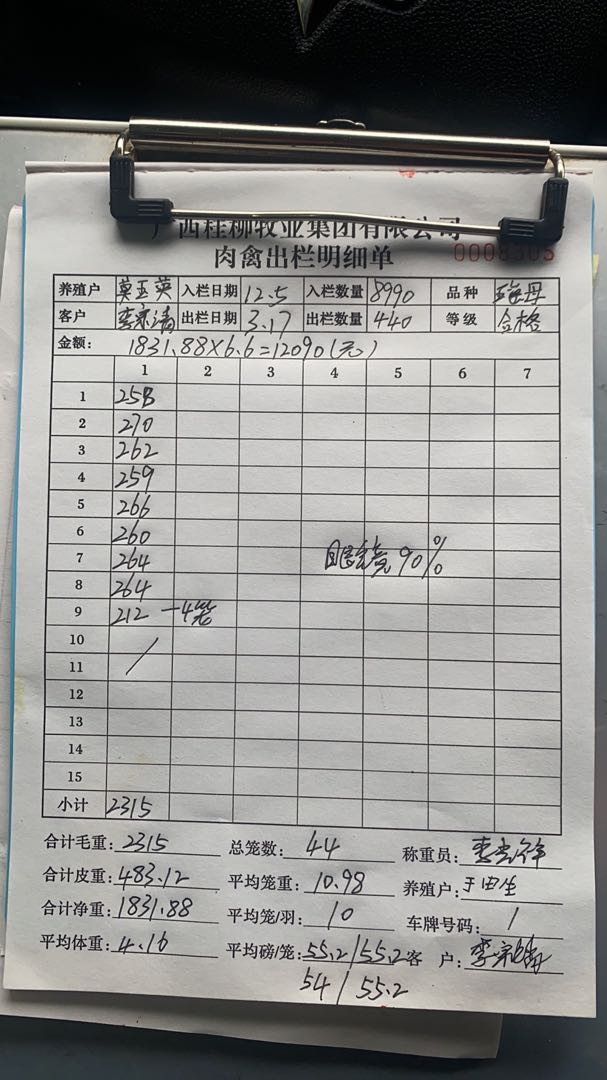 广西桂柳牧业集团有限公司
肉禽出栏明细单 0008303
养殖户 莫玉英 入栏日期 12.5 入栏数量 8990 品种
客户 出栏日期 3.17 出栏数量 440 等级 合格
金额: 1831.88×6.6=12090(元)
1 2 3 4 5 6 7
1 258
2 270
3 262
4 259
5 266
6 260
7 264 眼亮90%
8 264
9 212 —4笼
10
11 /
12
13
14
15
小计 2315
合计毛重: 2315 总笼数: 44 称重员:
合计皮重: 483.12 平均笼重: 10.98 养殖户:
合计净重: 1831.88 平均笼/羽: 10 车牌号码: /
平均体重: 4.16 平均磅/笼: 55.2/55.2 客 户:
54/55.2